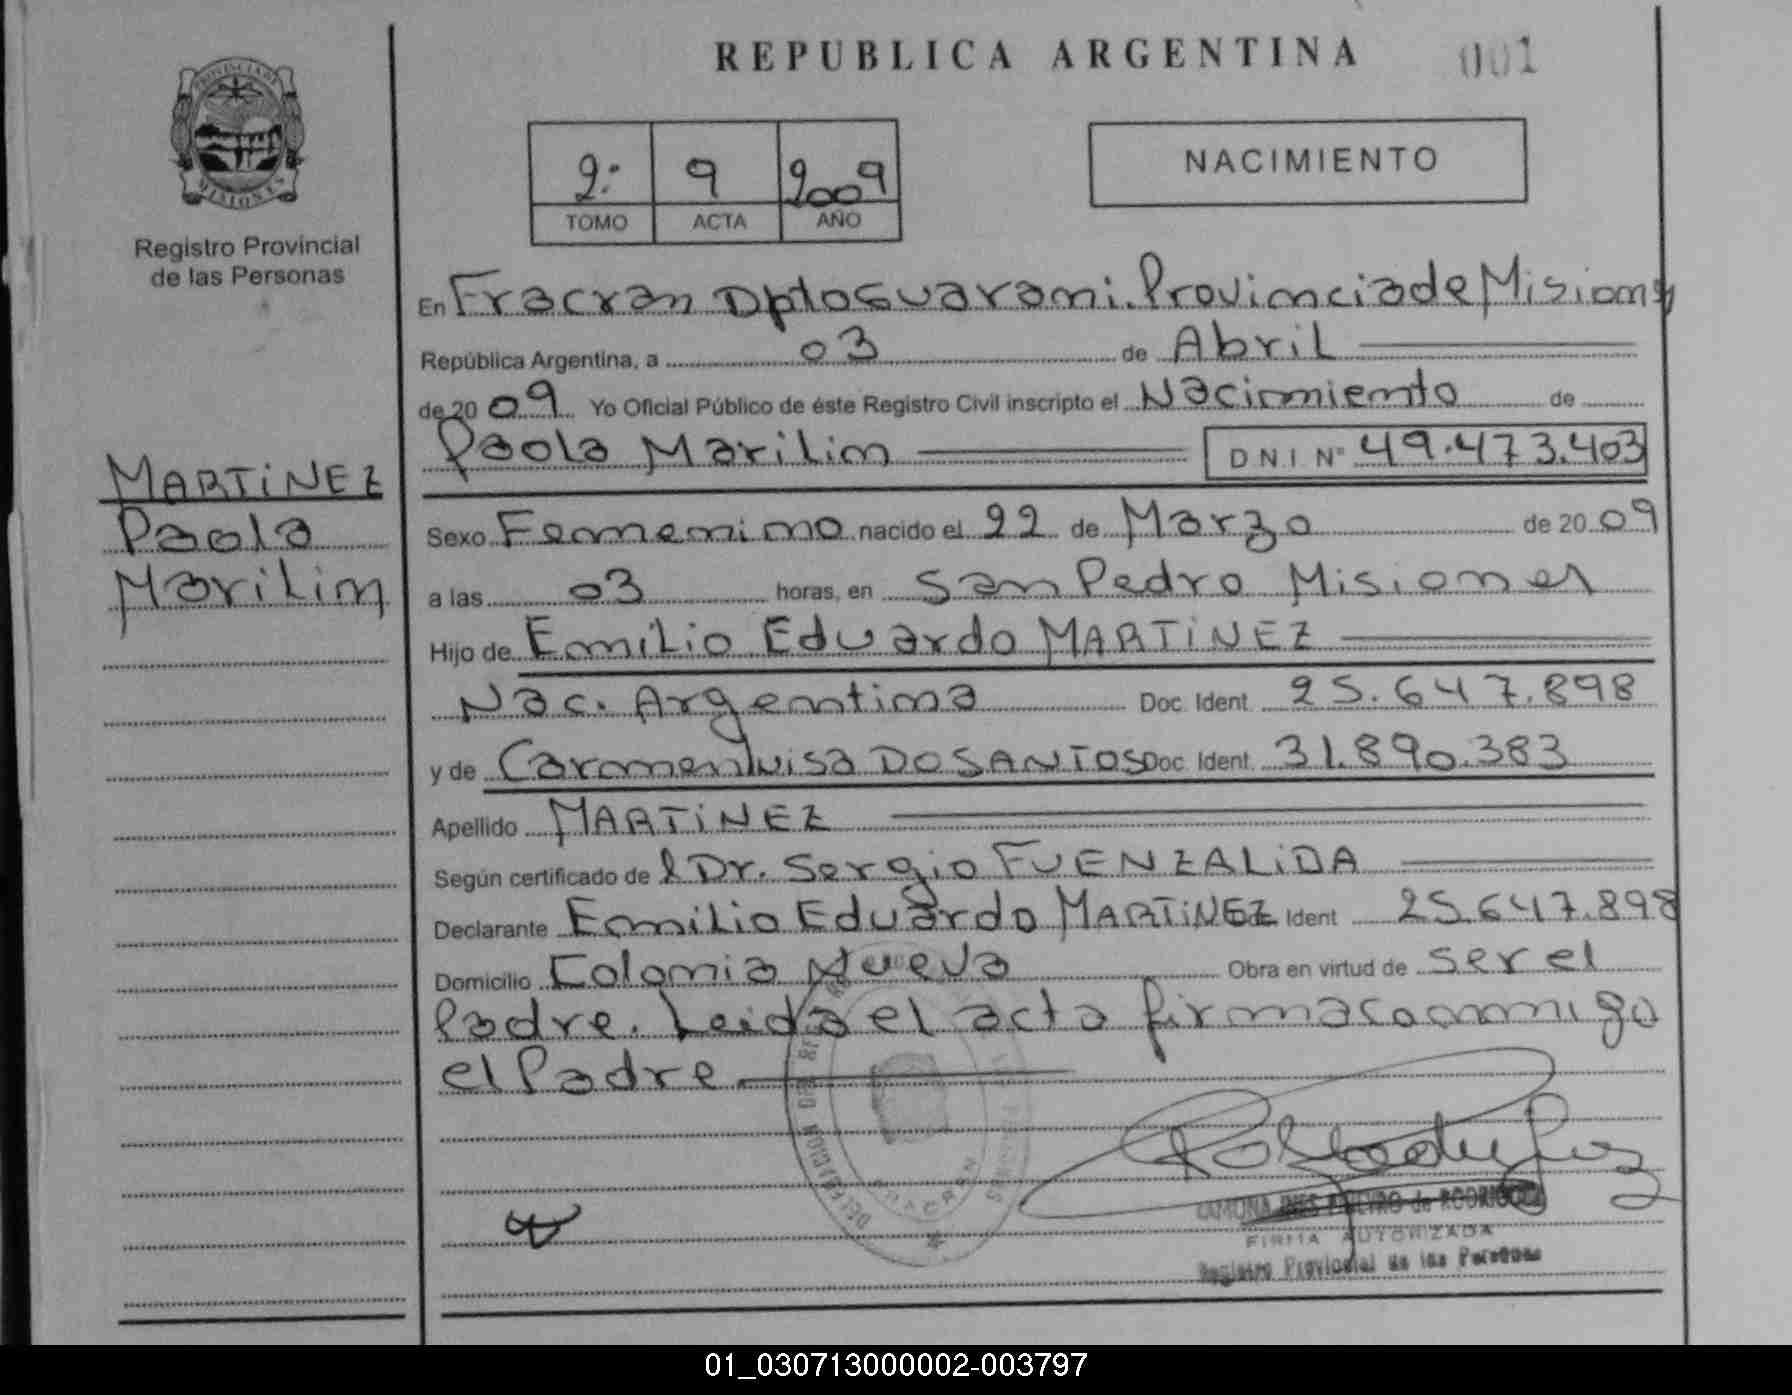 REPUBLICA ARGENTINA
001
PROVINCIA DE
MISIONES
Registro Provincial
de las Personas
2º
9
2009
TOMO
ACTA
AÑO
NACIMIENTO
En Fracran Dpto Guarani. Provincia de Misiones
República Argentina, a 03 de Abril
de 2009 Yo Oficial Público de éste Registro Civil inscripto el Nacimiento de
Paola Marilin D N I Nº 49.473.403
MARTiNEZ
Paola
Marilin
Sexo Femenino nacido el 22 de Marzo de 2009
a las 03 horas, en San Pedro Misiones
Hijo de Emilio Eduardo MARTiNEZ
Nac. Argentina Doc. Ident. 25.647.898
y de Carmen Luisa DOSANTOS Doc. Ident. 31.890.383
Apellido MARTiNEZ
Según certificado de l Dr. Sergio FUENZALiDA
Declarante Emilio Eduardo MARTiNEZ Ident 25.647.898
Domicilio Colonia Nueva Obra en virtud de ser el
Padre. Leida el acta firma conmigo
el Padre
FRACRAN
de RODRIGUEZ
FIRMA AUTORIZADA
Registro Provincial de las Personas
01_030713000002-003797